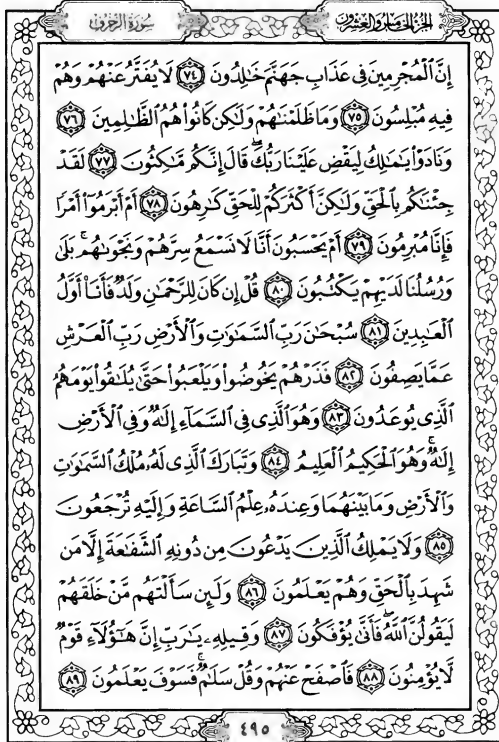 الجزء الخامس والعشرون
سورة الزخرف
إِنَّ ٱلْمُجْرِمِينَ فِى عَذَابِ جَهَنَّمَ خَٰلِدُونَ ﴿٧٤﴾ لَا يُفَتَّرُ عَنْهُمْ وَهُمْ
فِيهِ مُبْلِسُونَ ﴿٧٥﴾ وَمَا ظَلَمْنَٰهُمْ وَلَٰكِن كَانُوا۟ هُمُ ٱلظَّٰلِمِينَ ﴿٧٦﴾
وَنَادَوْا۟ يَٰمَٰلِكُ لِيَقْضِ عَلَيْنَا رَبُّكَ ۖ قَالَ إِنَّكُم مَّٰكِثُونَ ﴿٧٧﴾ لَقَدْ
جِئْنَٰكُم بِٱلْحَقِّ وَلَٰكِنَّ أَكْثَرَكُمْ لِلْحَقِّ كَٰرِهُونَ ﴿٧٨﴾ أَمْ أَبْرَمُوٓا۟ أَمْرًا
فَإِنَّا مُبْرِمُونَ ﴿٧٩﴾ أَمْ يَحْسَبُونَ أَنَّا لَا نَسْمَعُ سِرَّهُمْ وَنَجْوَىٰهُم ۚ بَلَىٰ
وَرُسُلُنَا لَدَيْهِمْ يَكْتُبُونَ ﴿٨٠﴾ قُلْ إِن كَانَ لِلرَّحْمَٰنِ وَلَدٌ فَأَنَا۠ أَوَّلُ
ٱلْعَٰبِدِينَ ﴿٨١﴾ سُبْحَٰنَ رَبِّ ٱلسَّمَٰوَٰتِ وَٱلْأَرْضِ رَبِّ ٱلْعَرْشِ
عَمَّا يَصِفُونَ ﴿٨٢﴾ فَذَرْهُمْ يَخُوضُوا۟ وَيَلْعَبُوا۟ حَتَّىٰ يُلَٰقُوا۟ يَوْمَهُمُ
ٱلَّذِى يُوعَدُونَ ﴿٨٣﴾ وَهُوَ ٱلَّذِى فِى ٱلسَّمَآءِ إِلَٰهٌ وَفِى ٱلْأَرْضِ
إِلَٰهٌ ۚ وَهُوَ ٱلْحَكِيمُ ٱلْعَلِيمُ ﴿٨٤﴾ وَتَبَارَكَ ٱلَّذِى لَهُۥ مُلْكُ ٱلسَّمَٰوَٰتِ
وَٱلْأَرْضِ وَمَا بَيْنَهُمَا وَعِندَهُۥ عِلْمُ ٱلسَّاعَةِ وَإِلَيْهِ تُرْجَعُونَ
﴿٨٥﴾ وَلَا يَمْلِكُ ٱلَّذِينَ يَدْعُونَ مِن دُونِهِ ٱلشَّفَٰعَةَ إِلَّا مَن
شَهِدَ بِٱلْحَقِّ وَهُمْ يَعْلَمُونَ ﴿٨٦﴾ وَلَئِن سَأَلْتَهُم مَّنْ خَلَقَهُمْ
لَيَقُولُنَّ ٱللَّهُ ۖ فَأَنَّىٰ يُؤْفَكُونَ ﴿٨٧﴾ وَقِيلِهِۦ يَٰرَبِّ إِنَّ هَٰٓؤُلَآءِ قَوْمٌ
لَّا يُؤْمِنُونَ ﴿٨٨﴾ فَٱصْفَحْ عَنْهُمْ وَقُلْ سَلَٰمٌ ۚ فَسَوْفَ يَعْلَمُونَ ﴿٨٩﴾
٤٩٥